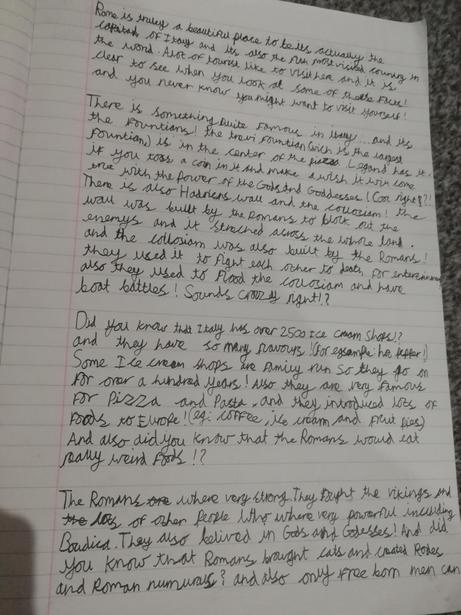 Rome is truley a beautiful place to be its actually the
capatail of Italy and its also the most visited country in
the world. A lot of tourist like to visit here and it is
clear to see when you look at some of these facts!
and you never know you might want to visit yourself!
There is something quite famous in italy... and its
the Fountians! the trevi Fountian (wich is the largest
Fountian) is in the center of the piazza. Legand has it
if you toss a coin in it and make a wish it will come
true with the power of the Gods and Goddesses! (Cool right?!
There is also Hadriens wall and the collosium! the
wall was built by the Romans to block out the
enemys and it streched across the whole land.
and the collosiam was also built by the Romans!
they used it to fight each other to death, for entertainment
also they used to flood the collosiam and have
boat battles! Sounds crazy right!?
Did you know that Italy has over 2500 Ice cream shops!?
and they have so many flavours! (for example: hot pepper!)
Some Ice cream shops are family run so they go on
for over a hundred years! Also they are very famous
for Pizza and Pasta, and they introduced lots of
foods to Europe! (eg: coffee, ice cream and fruit pies)
And also did you know that the Romans would eat
really weird foods!?
The Romans where very strong. They fought the vikings and
lots of other people who where very powerful including
Boudica. They also belived in Gods and Godesses! And did
you know that Romans brought cats and created Rodes
and Roman numurals? and also only free born men can